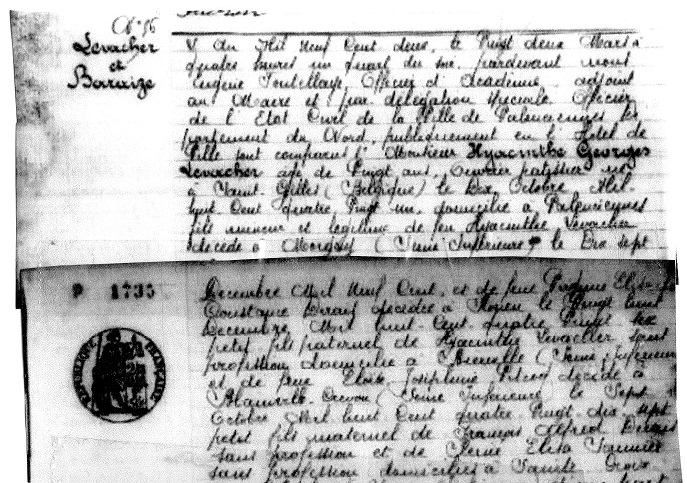 N° 76
Levacher
et
Baraize
L'an Mil Neuf Cent deux, le Vingt deux Mars à
quatre heures un quart du soir, pardevant nous
Eugène Officier d'Académie, adjoint
au Maire et par délégation spéciale Officier
de l'Etat Civil de la Ville de Valenciennes Dé
partement du Nord, publiquement en l'Hôtel de
Ville sont comparus 1° Monsieur Hyacinthe Georges
Levacher âgé de Vingt ans, Ouvrier patissier né
à Saint Gilles (Belgique) le Dix Octobre Mil
huit Cent quatre Vingt un, domicilié à Valenciennes
fils mineur et légitime de feu Hyacinthe Levacher
décédé à (Seine Inférieure) le Dix sept
P 1735
REPUBLIQUE FRANÇAISE
Decembre Mil Neuf Cent, et de feue
Constance décédée à Rouen le Vingt huit
Decembre Mil huit Cent quatre Vingt
petit fils paternel de Hyacinthe Levacher sans
profession domicilié à (Seine Inférieure
et de feue Eloïse Josephine décédée à
Blainville Crevon (Seine Inférieure) le Sept
Octobre Mil huit Cent quatre Vingt dix sept
petit fils maternel de François Alfred
sans profession et de Elisa
sans profession domiciliés à Sainte Croix